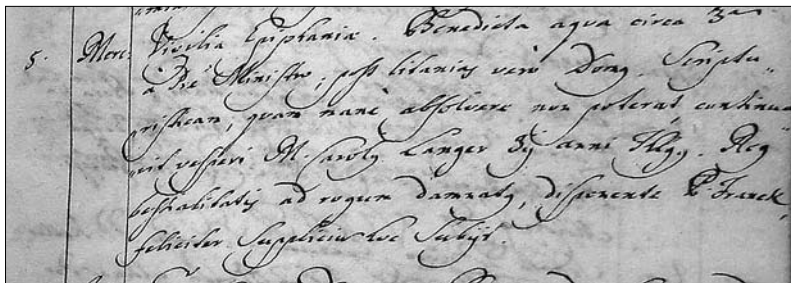 5. Merc: Vigilia Epiphaniæ. Benedicta aqua circa 3am
a Pre Ministro; post litanias vero Domq. Scriptu„
risticam, quam mane absolvere non poterat, continua„
„vit vesperi M. Carolq Langer 3ij anni Thlgq. Reg
bestialitatis ad rogum damnatq, disponente P. Franck,
feliciter Supplicium hoc Subijt.